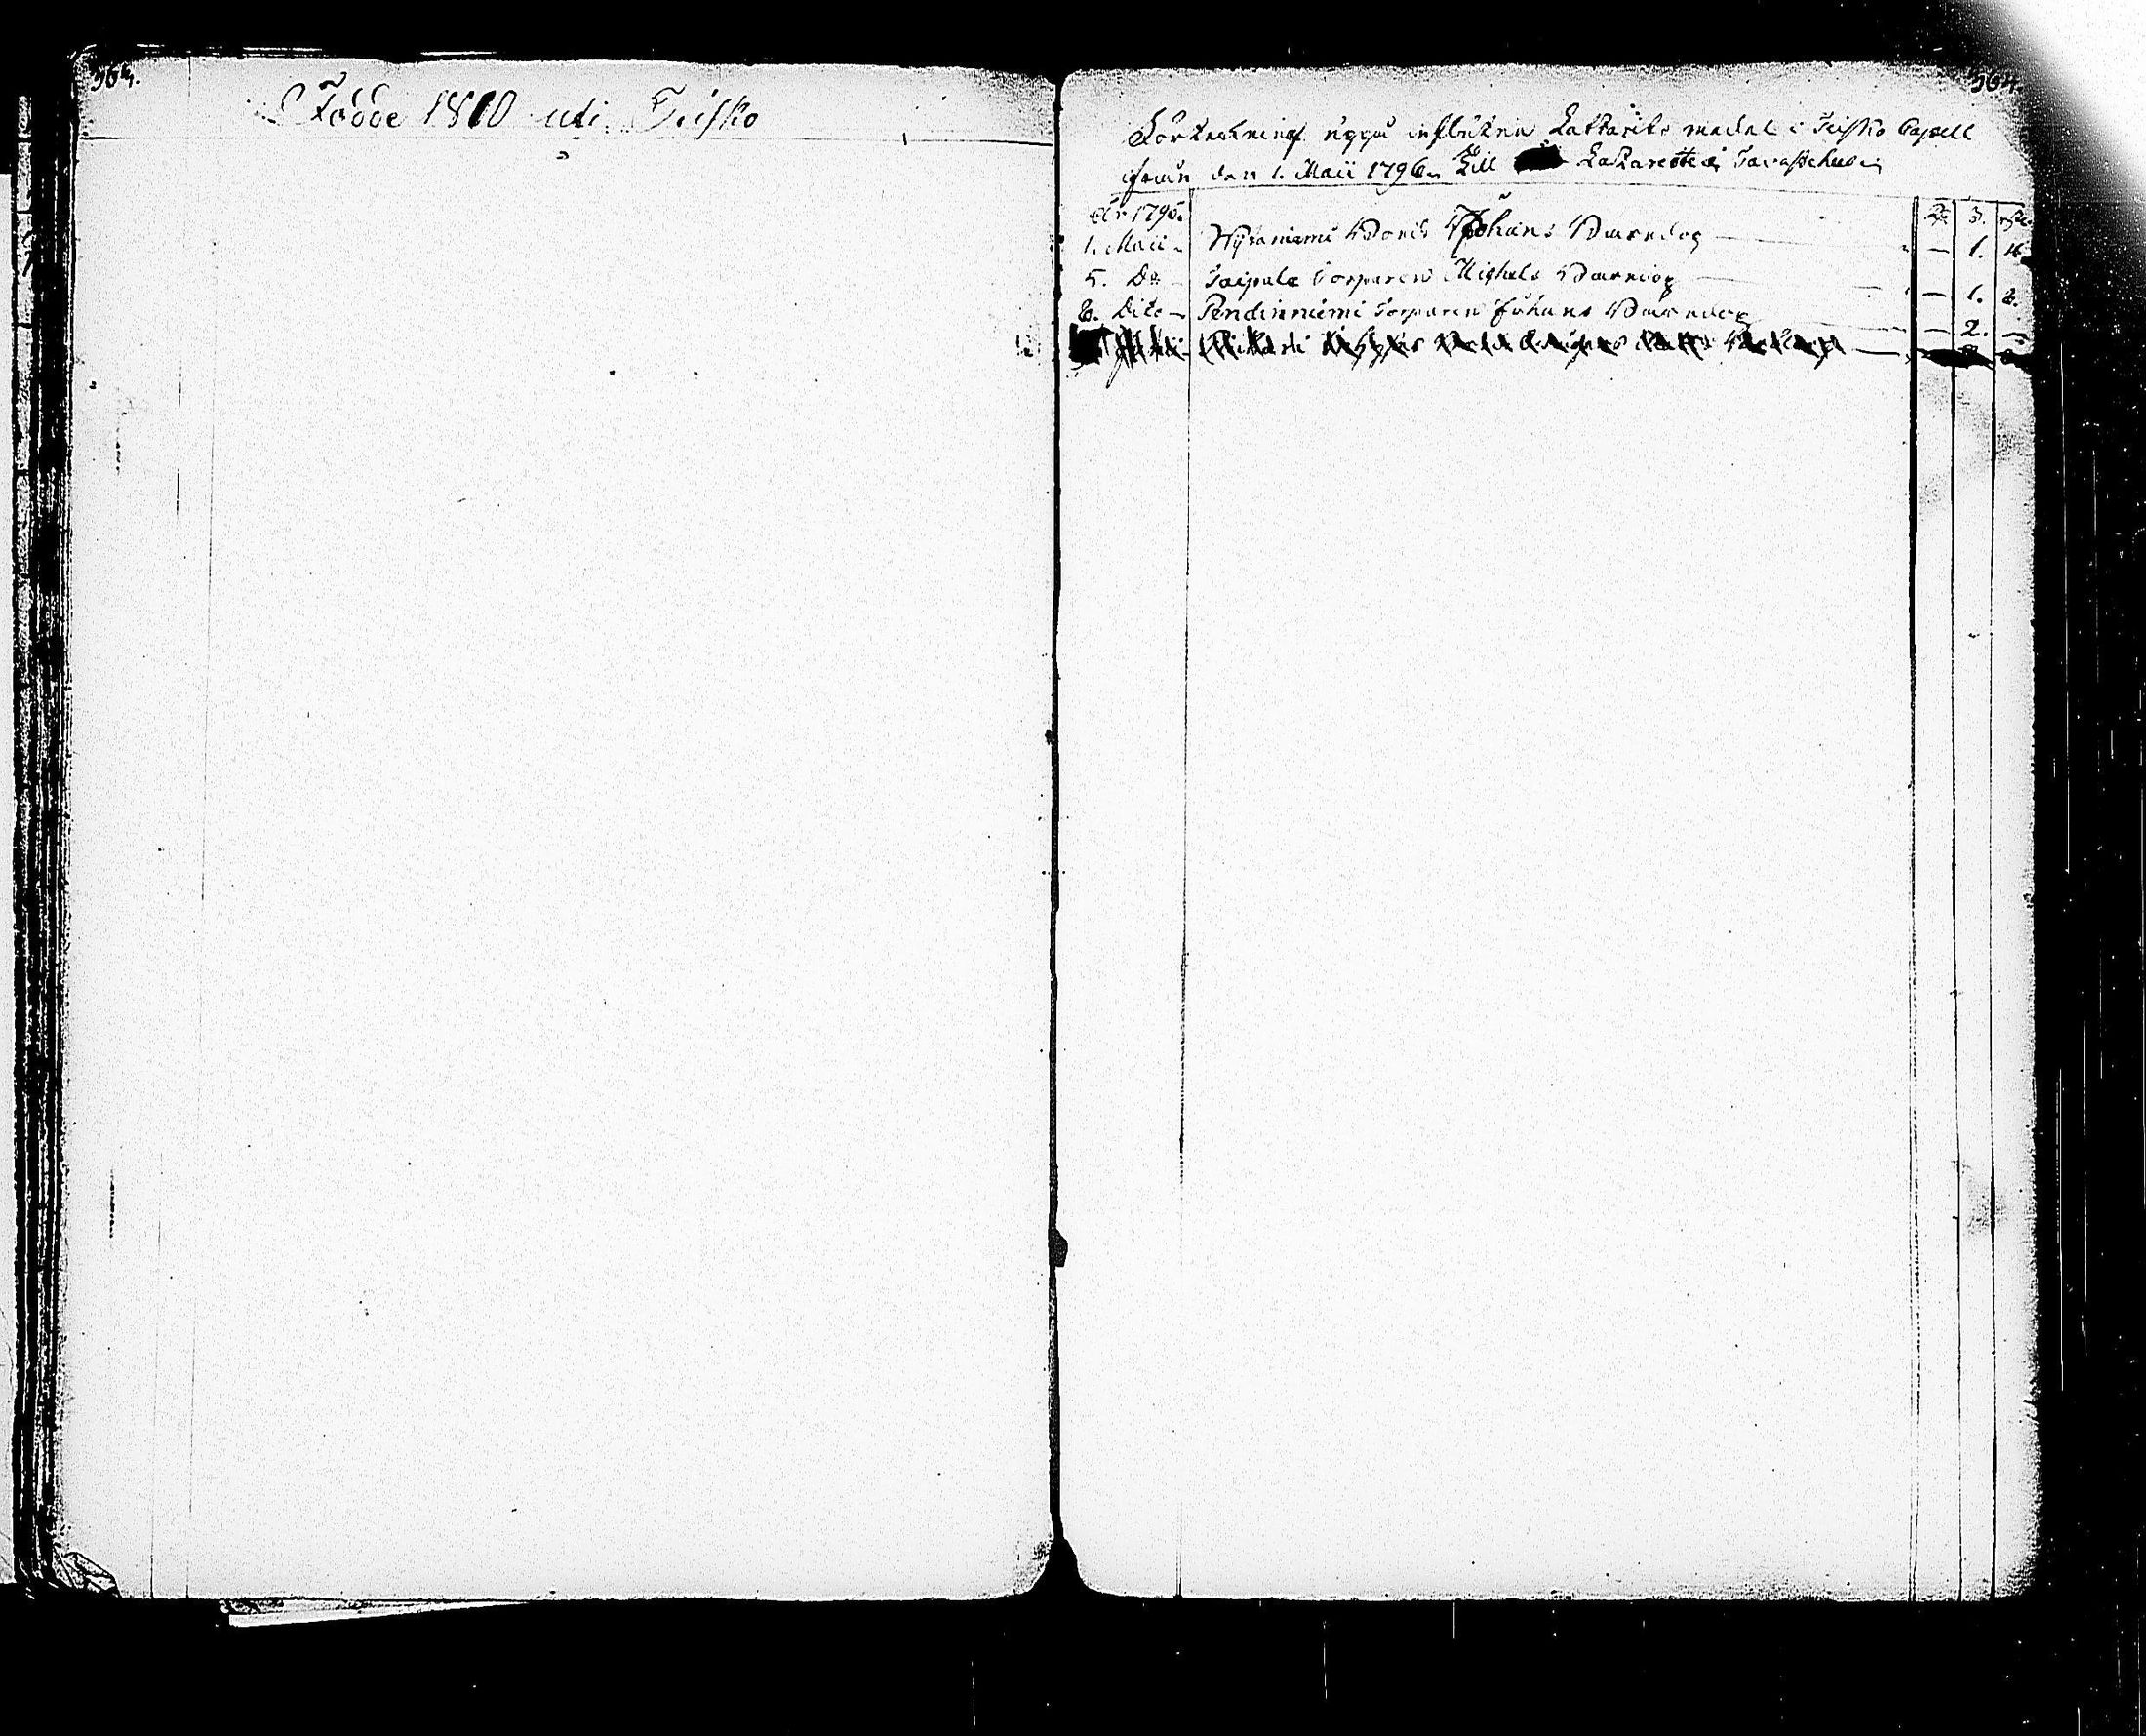 564.
Födde 1810 uti Teisko
564.
Förteckning uppå influtne Lattarets medel i Teisko Capell
ifrån den 1. Maii 1796. till Lazarettet i Tavastehus
År 1796.
1. Maii - Johans Barndop — 1. 4.
5. Do - Taipale Torparen Michels Barndop — 1. 2.
8. Dito - Pendinniemi Torparen Johans Barndop — 2. —